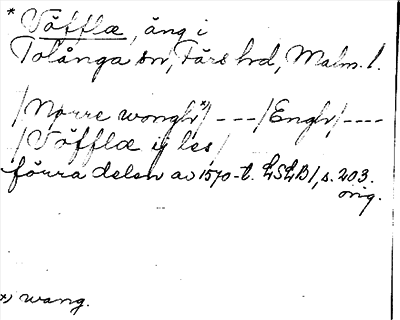 * Töfflæ, äng i
Tolånga sn, Färs hd, Malm. l.
/Nørre wongh*)/ ---/Engh/----
/Töfflæ ij les/
förra delen av 1570-t. LSLB1, s. 203.
orig.
*) wang.